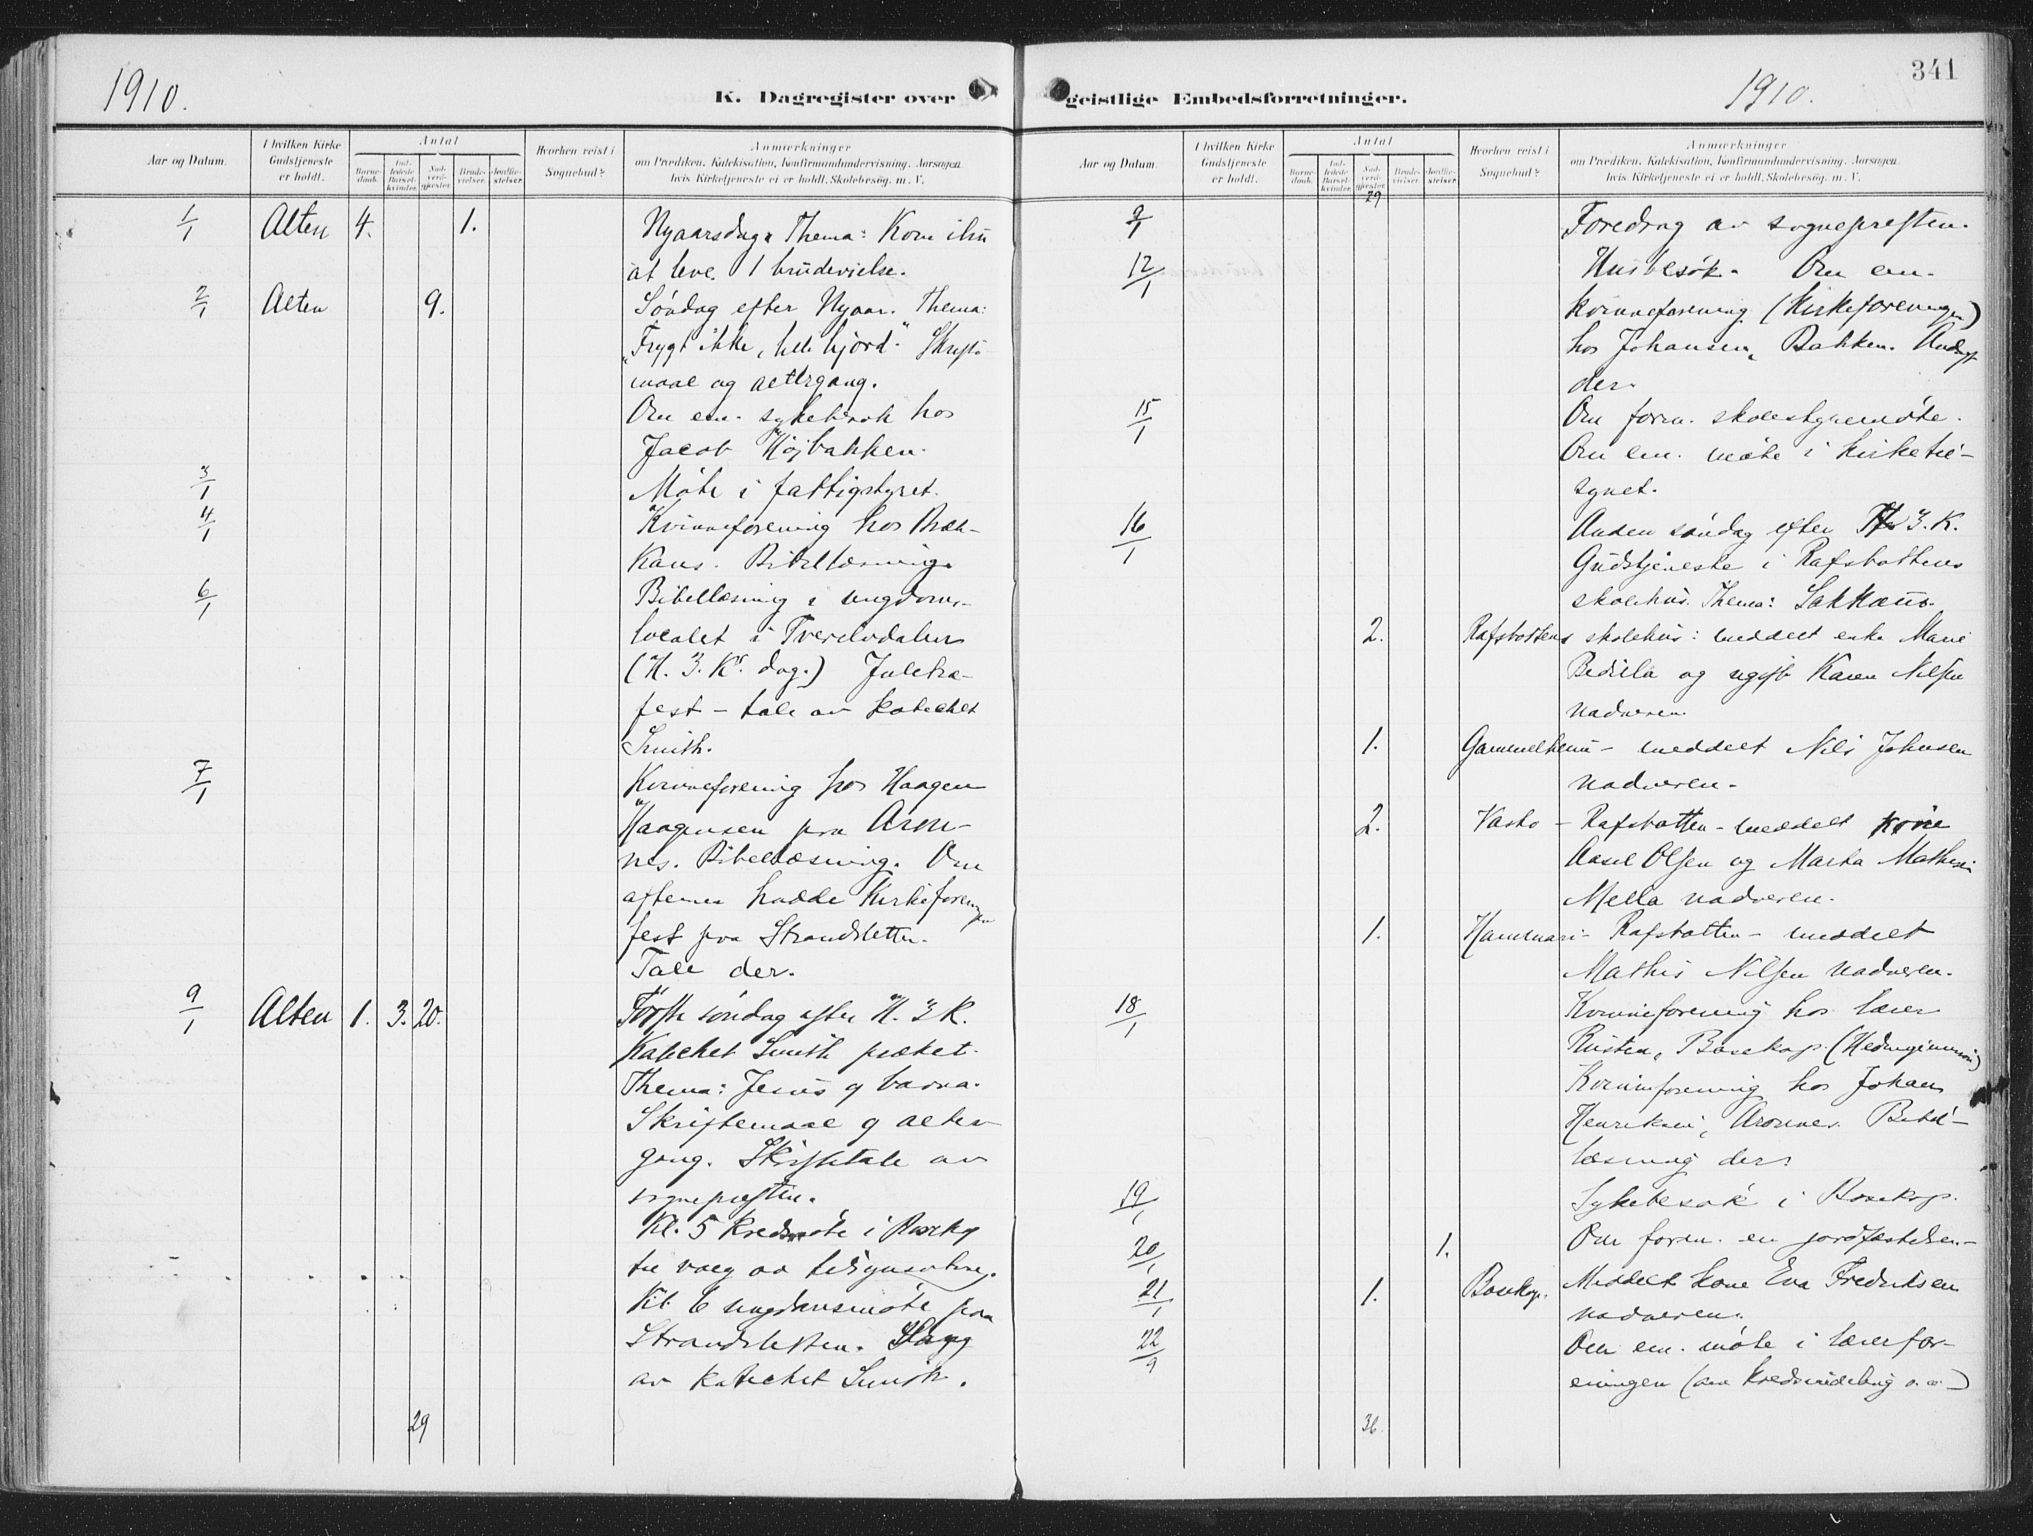 1910.
K. Dagregister over
Aar og Datum.
I hvilken Kirke Gudstjeneste er holdt.
Antal
Barne-daab.
Ind-ledede Barsel-kvinder.
Nad-verd-gjester.
Brude-vielser.
Jordfæ-stelser.
Hvorhen reist i Sognebud?
Anmærkninger
om Prædiken, Katekisation, Konfirmandundervisning, Aarsagen,
hvis Kirketjeneste ei er holdt, Skolebesøg m. V.
1/1 Alten 4. 1. Nyaarsdag. Thema: Kom ihu
at leve. 1 brudevielse.
2/1 Alten 9. Søndag efter Nyaar. Thema:
"Frygt ikke, lille hjord." Skrifte-
maal og altergang.
Om em. sykebesøk hos
Jacob Højbakken.
3/1 Møte i fattigstyret.
4/1 Kvinneforening hos Bræk-
kans. Bibellæsning.
6/1 Bibellæsning i ungdoms-
localet i Tverelvdalen
(H. 3. K. dag.) Juletræ-
fest – tale av katechet
Smith.
7/1 Kvinneforening hos Haagen
Haagensen paa Aron-
nes. Bibellæsning. Om
aftenen hadde Kirkeforeningen
fest paa Strandsletten.
Tale der.
9/1 Alten 1. 3. 20. Første søndag efter H. 3 K.
Katechet Smith præket.
Thema: Jesus og barna.
Skriftemaal og alter-
gang. Skriftetale av
sognepræsten.
Kl. 5 kredsmøte i Bosekop
til valg av tilsynsutvalg.
Kl. 6 ungdomsmøte paa
Strandsletten.
av katechet Smith.
29
341
1910.
geistlige Embedsforretninger.
Aar og Datum.
I hvilken Kirke Gudstjeneste er holdt.
Antal
Barne-daab.
Ind-ledede Barsel-kvinder.
Nad-verd-gjester.
Brude-vielser.
Jordfæ-stelser.
Hvorhen reist i Sognebud?
Anmærkninger
om Prædiken, Katekisation, Konfirmandundervisning, Aarsagen,
hvis Kirketjeneste ei er holdt, Skolebesøg m. V.
29
9/1 Foredrag av sognepresten.
12/1 Husbesøk. Om em.
kvinneforening (Kirkeforeningen)
hos Johansen, Bakken. Andagt
der.
15/1 Om form. skolestyremøte.
Om em. møte i kirketil-
synet.
16/1 Anden søndag efter H 3. K.
Gudstjeneste i Rafsbottens
skolehus. Thema: Sakkæus.
2. Rafsbottens skolehus: meddelt enke Marie
Bedisla og ugift Karen Nilsen
nadveren
1. Gammelheim – meddelt Nils Johnsen
nadveren.
2. Vasko – Rafsbotten – meddelt kone
Aasel Olsen og Marta Mathisen
Mella nadveren.
1. Hammari – Rafsbotten – meddelt
Mathis Nilsen nadveren.
18/1 Kvinneforening hos lærer
Risten, Bosekop. (Hedningemission)
Kvinneforening hos Johan
Henriksen, Aronnes. Bibel-
læsning der.
19/1 Sykebesøk i Bosekop.
20/1 1. Om form. en jordfæstelse.
21/1 1. Bosekop. Meddelt kone Eva Fredriksen
nadveren.
22/9 Om em. møte i lærerfor-
eningen (om kredsinddeling o. a.)
36